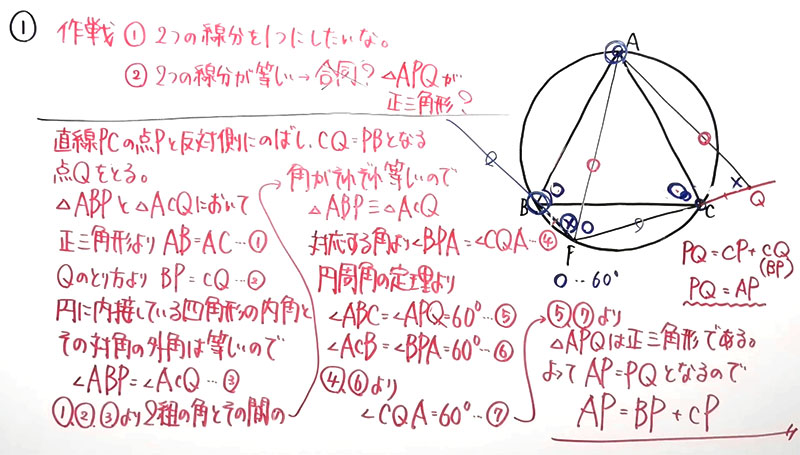 ①
作戦 ① 2つの線分を1つにしたいな。
② 2つの線分が等しい→合同? △APQが
正三角形?
直線PCの点Pと反対側にのばし、CQ=PBとなる
点Qをとる。
△ABPと△ACQにおいて
正三角形より AB=AC…①
Qのとり方より BP=CQ…②
円に内接している四角形の内角と
その対角の外角は等しいので
∠ABP=∠ACQ…③
①,②,③より2組の角とその間の
角がそれぞれ等しいので
△ABP≡△ACQ
対応する角より∠BPA=∠CQA…④
円周角の定理より
∠ABC=∠APQ=60°…⑤
∠ACB=∠BPA=60°…⑥
④,⑥より
∠CQA=60°…⑦
⑤,⑦より
△APQは正三角形である。
よってAP=PQとなるので
AP=BP+CP
A
B
C
P
Q
○…60°
PQ=CP+CQ
(BP)
PQ=AP